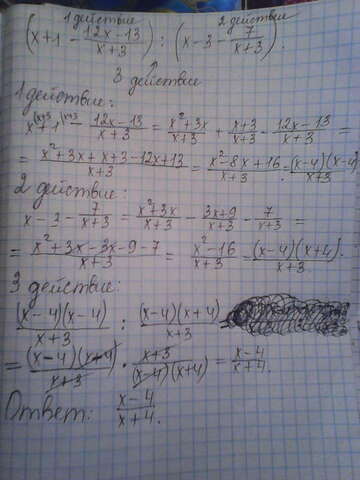 1 действие 2 действие
(x+1 - 12x-13/x+3) : (x-3 - 7/x+3).
3 действие
1 действие:
x^(x+3 + 1^(x+3 - 12x-13/x+3 = x²+3x/x+3 + x+3/x+3 - 12x-13/x+3 =
= x²+3x+x+3-12x+13/x+3 = x²-8x+16/x+3 = (x-4)(x-4)/x+3
2 действие:
x-3 - 7/x+3 = x²+3x/x+3 - 3x+9/x+3 - 7/x+3 =
= x²+3x-3x-9-7/x+3 = x²-16/x+3 = (x-4)(x+4)/x+3.
3 действие:
(x-4)(x-4)/x+3 : (x-4)(x+4)/x+3 =
= (x-4)(x+4)/x+3 · x+3/(x-4)(x+4) = x-4/x+4.
Ответ: x-4/x+4.